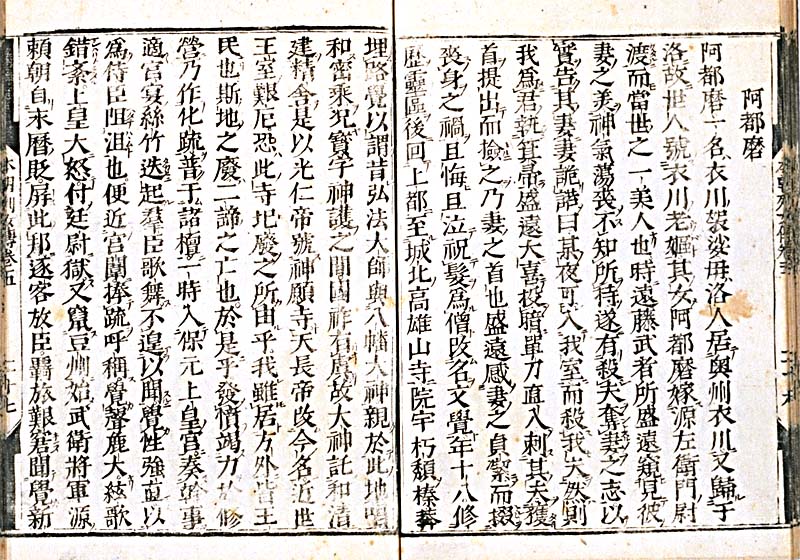 阿都磨
阿都磨一名衣川袈裟毋洛人居奥州衣川又歸于
洛故世人號衣川老嫗其女阿都磨嫁源左衛門尉
渡而當世之一美人也時遠藤武者所盛遠窺見彼
妻之美神氣蕩喪不知所持遂有殺夫奪妻之志以
實告其妻妻詭諾曰某夜可入我室而殺我夫然則
我爲吾執箕帚盛遠大喜投暗單刀直入刺其夫獲
首提出而撿之乃妻之首也盛遠感妻之貞絜而掇
喪身之禍且悔且泣祝髮爲僧改名文覺年十八修
歷靈區後回上都至城北高雄山寺院宇朽頹榛莽
埋路覺以謂昔弘法大師與八幡大神親於此地唱
和密乘况寶字神護之間國祚有虞故大神託和清
建精舍是以光仁帝號神願寺天長帝改今名近世
王室艱厄恐此寺圯廢之所由乎我雖居方外皆王
民也斯地之廢二諦之亡也於是乎發憤竭力於修
營乃作化疏普干諸檀一時入保元上皇宮奏幹事
適宮宴絲竹迭起羣臣歌舞不遑以聞覺性強直以
爲侍臣阻沮也便近宮闈捧疏呼稱覺聲麁大絃歌
錯紊上皇大怒付廷尉獄又竄豆州始武衛將軍源
賴朝自末曆貶屏此邦逐客放臣羇旅艱窘聞覺新